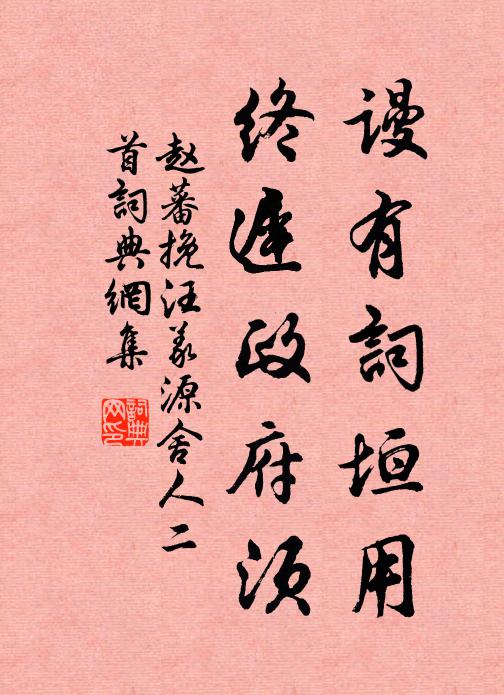 谩有词垣用
终遲政府须
赵蕃挽汪义源舍人二
首词典網集
詞典
网印